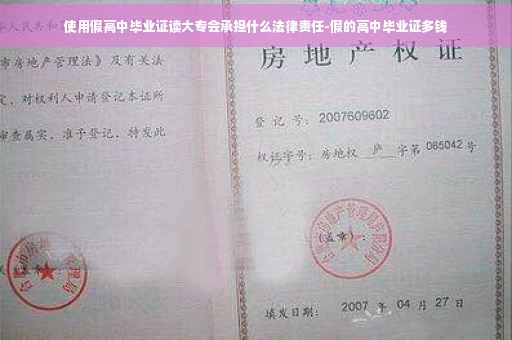 使用假高中毕业证读大专会承担什么法律责任-假的高中毕业证多钱
华人民共和
市房地产管理法》及有关法
定，对权利人申请登记本证所
审查属实，准予登记，特发此
房地产权证
登记号：2007609602
权证字号：房地权 庐 字第 085042 号
(盖章)：
填发日期： 2007 年 04 月 27 日